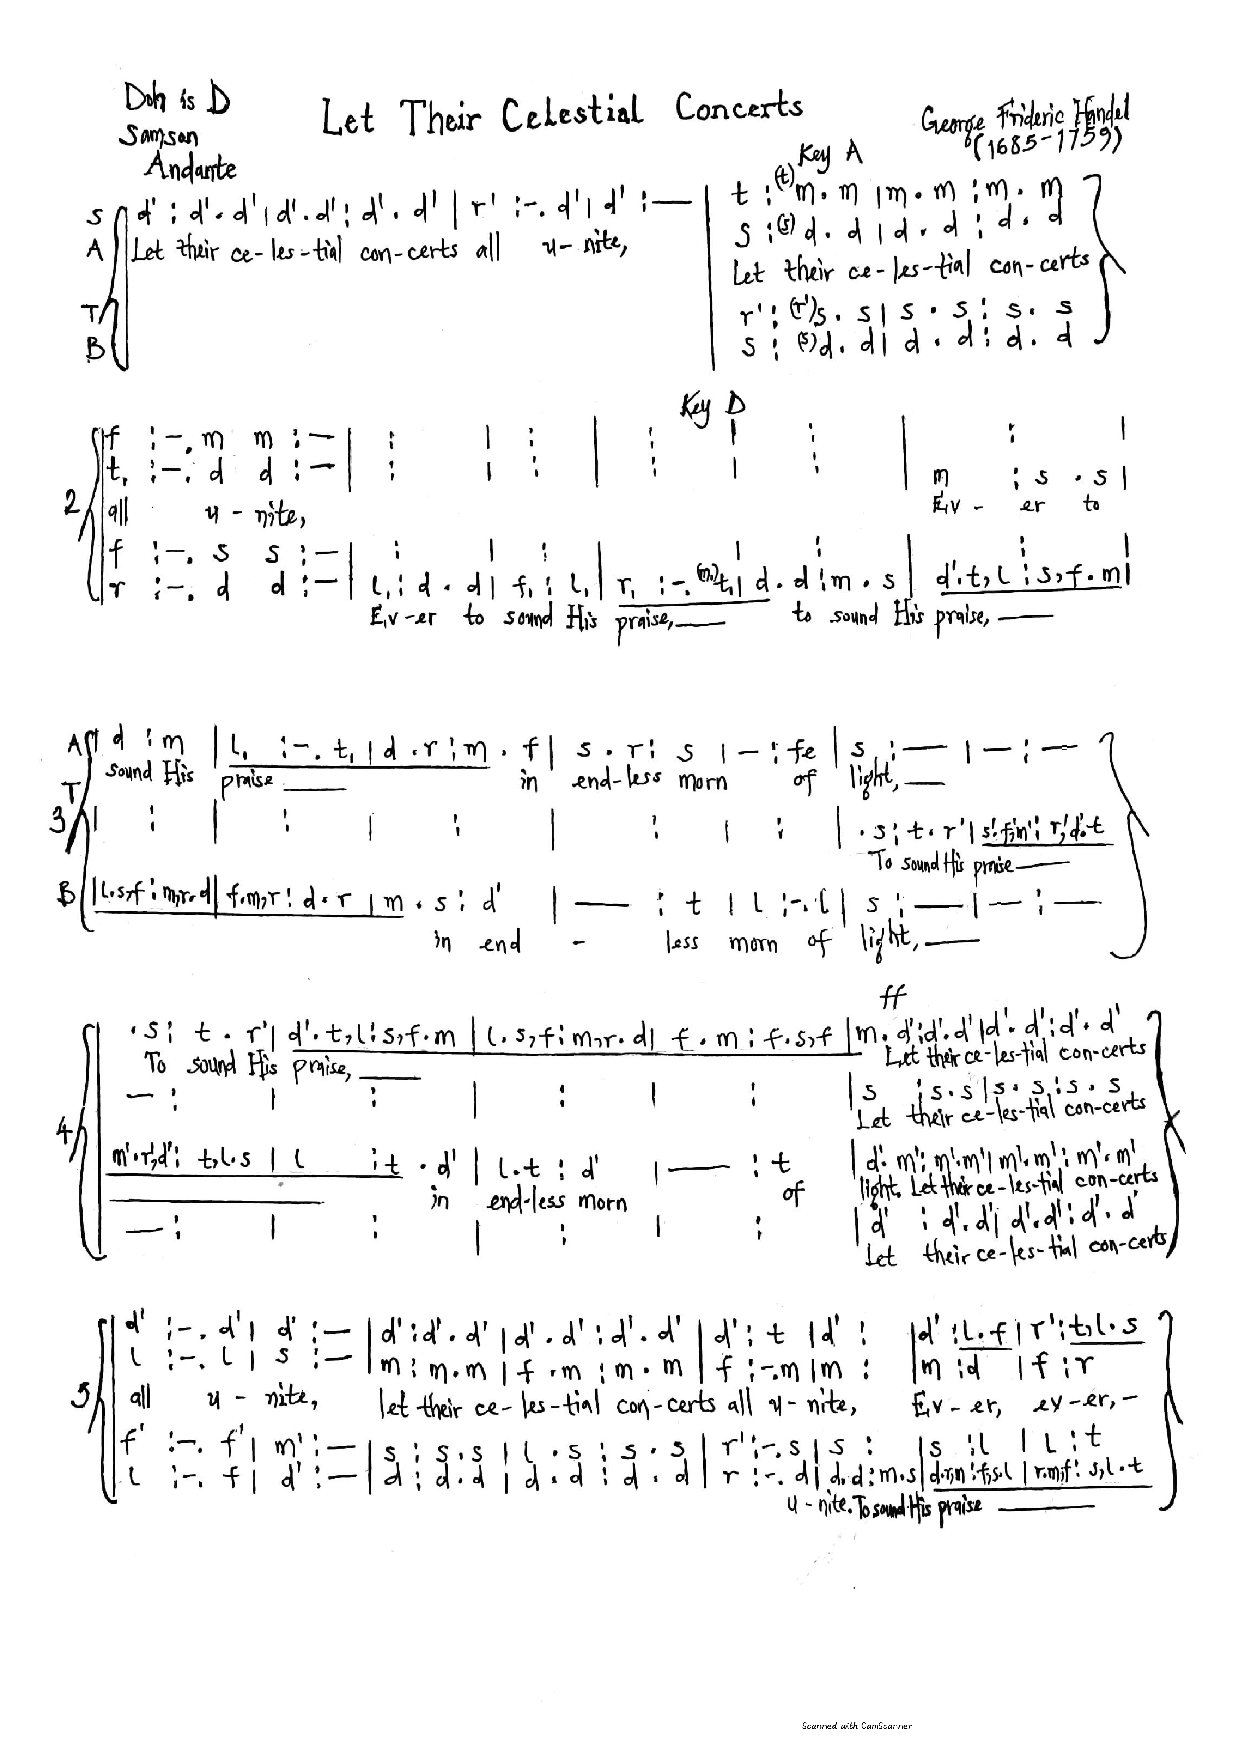 Doh is D
Let Their Celestial Concerts
George Frideric Handel
Samson
(1685-1759)
Andante
Key A
S d' : d'. d' | d'. d' : d'. d' | r' :-. d' | d' :— | t :(t)m. m | m. m : m. m
A s :(s)d. d | d. d : d. d
Let their ce-les-tial con-certs all u-nite, Let their ce-les-tial con-certs
T r' :(r')s. s | s. s : s. s
B s :(s)d. d | d. d : d. d
Key D
2
f :-. m m :— | : | : | : | : | : |
t, :-. d d :— | : | : | : | : | m : s . s |
all u-nite, Ev-er to
f :-. s s :— | : | : | | : | : |
r :-. d d :— | l, : d. d | f, : l, | r, :-.(m,)t, | d. d : m. s | d'. t, l : s, f. m |
Ev-er to sound His praise,— to sound His praise,—
3
A d : m | l, :-. t, | d. r : m. f | s. r : s | — : fe | s :— | — : —
sound His praise — in end-less morn of light,—
T | : | : | : | : | : | . s : t. r' | s'. f', m' : r', d'. t
To sound His praise—
B | l. s, f : m, r. d | f. m, r : d. r | m. s : d' | — : t | l :-. l | s :— | — : —
in end - less morn of light,—
ff
4
. s : t. r' | d'. t, l : s, f. m | l. s, f : m, r. d | f. m : f. s, f | m. d' : d'. d' | d'. d' : d'. d'
To sound His praise,— Let their ce-les-tial con-certs
— : | : | : | : | s : s. s | s. s : s. s
Let their ce-les-tial con-certs
m'. r', d' : t, l. s | l : t. d' | l. t : d' | — : t | d'. m' : m'. m' | m'. m' : m'. m'
in end-less morn of light. Let their ce-les-tial con-certs
— : | : | : | : | d' : d'. d' | d'. d' : d'. d'
Let their ce-les-tial con-certs
5
d' :-. d' | d' :— | d' : d'. d' | d'. d' : d'. d' | d' : t | d' : | d' : l. f | r' : t, l. s
l :-. l | s :— | m : m. m | f. m : m. m | f :-. m | m : | m : d | f : r
all u-nite, let their ce-les-tial con-certs all u-nite, Ev-er, ev-er,-
f' :-. f' | m' :— | s : s. s | l. s : s. s | r' :-. s | s : | s : l | l : t
l :-. f | d' :— | d : d. d | d. d : d. d | r :-. d | d. d : m. s | d. r, m : f, s. l | r. m, f : s, l. t
u-nite. To sound His praise —
Scanned with CamScanner